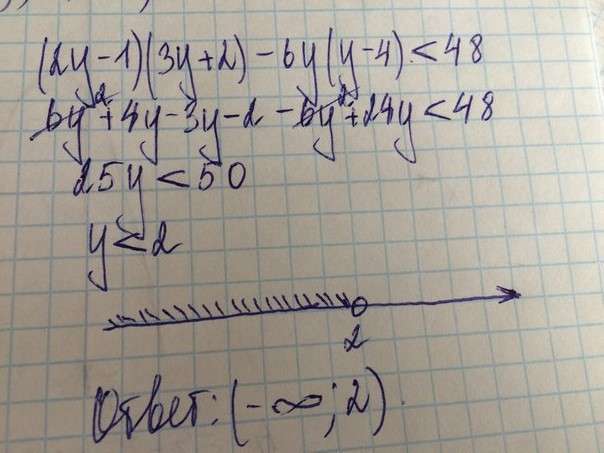 (2y-1)(3y+2)-6y(y-4)<48
6y²+4y-3y-2-6y²+24y<48
25y<50
y<2
2
Ответ: (-∞; 2).